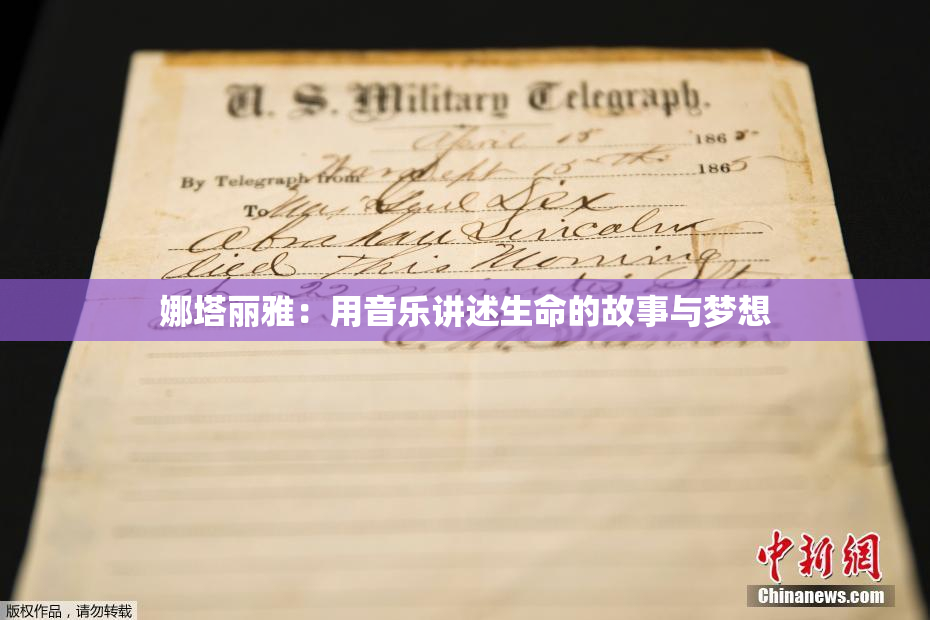 U. S. Military Telegraph.
April 15 1865
By Telegraph from War Dept 15th 1865
To Maj Genl Dix
Abraham Lincoln
died This Morning
at 22 minutes after
娜塔丽雅：用音乐讲述生命的故事与梦想
E. M. Stanton
中新网
Chinanews.com
版权作品，请勿转载